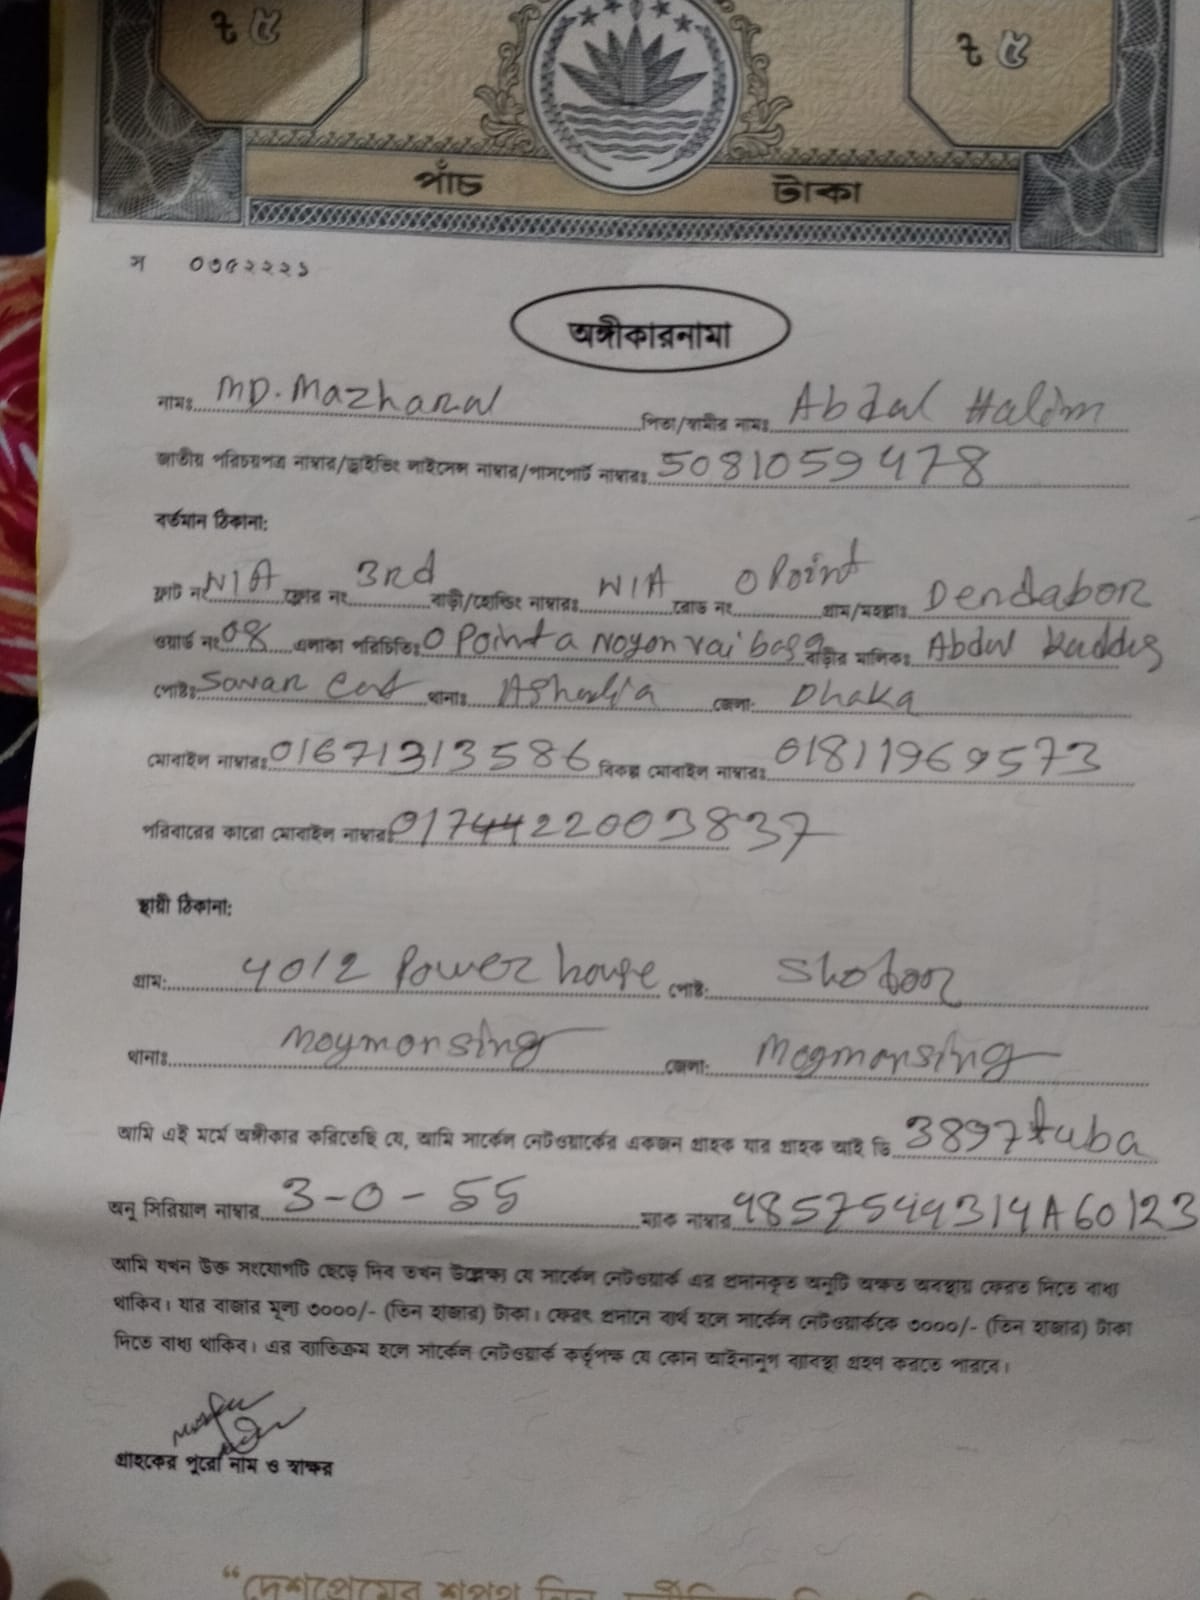 ৳ ৫ ৳ ৫
পাঁচ টাকা
স ০৩৫২২২১
অঙ্গীকারনামা
নামঃ MD. Mazharul পিতা/স্বামীর নামঃ Abdul Halim
জাতীয় পরিচয়পত্র নাম্বার/ড্রাইভিং লাইসেন্স নাম্বার/পাসপোর্ট নাম্বারঃ 5081059478
বর্তমান ঠিকানা:
ফ্লাট নং N/A ফ্লোর নং 3rd বাড়ী/হোল্ডিং নাম্বারঃ N/A রোড নং 0 Point গ্রাম/মহল্লাঃ Dendabor
ওয়ার্ড নং 08 এলাকা পরিচিতিঃ 0 Point a Noyon vai basa বাড়ীর মালিকঃ Abdul Kuddus
পোষ্টঃ Savar Cant থানাঃ Ashulia জেলা: Dhaka
মোবাইল নাম্বারঃ 01671313586 বিকল্প মোবাইল নাম্বারঃ 01811969573
পরিবারের কারো মোবাইল নাম্বারঃ 017 22003837
স্থায়ী ঠিকানা:
গ্রাম: 40/2 Power house পোষ্ট:
থানাঃ Moymonsing জেলা: Moymonsing
আমি এই মর্মে অঙ্গীকার করিতেছি যে, আমি সার্কেল নেটওয়ার্কের একজন গ্রাহক যার গ্রাহক আই ডি 3897tuba
অনু সিরিয়াল নাম্বার 3-0-55 ম্যাক নাম্বার 48575443/4A60123
আমি যখন উক্ত সংযোগটি ছেড়ে দিব তখন উল্লেক্ষ্য যে সার্কেল নেটওয়ার্ক এর প্রদানকৃত অনুটি অক্ষত অবস্থায় ফেরত দিতে বাধ্য
থাকিব। যার বাজার মূল্য ৩০০০/- (তিন হাজার) টাকা। ফেরৎ প্রদানে ব্যর্থ হলে সার্কেল নেটওয়ার্ককে ৩০০০/- (তিন হাজার) টাকা
দিতে বাধ্য থাকিব। এর ব্যতিক্রম হলে সার্কেল নেটওয়ার্ক কর্তৃপক্ষ যে কোন আইনানুগ ব্যাবস্থা গ্রহণ করতে পারবে।
গ্রাহকের পুরো নাম ও স্বাক্ষর
“দেশপ্রেমের শপথ নিন